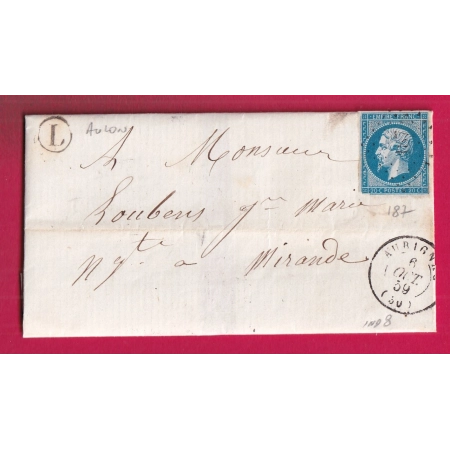 L
AULON
EMPIRE FRANC
20 C POSTE 20 C
187
A Monsieur
Loubens Jne Marie
Nyt. a Mirande
AURIGNAC
6
OCT.
59
(30)
IND 8